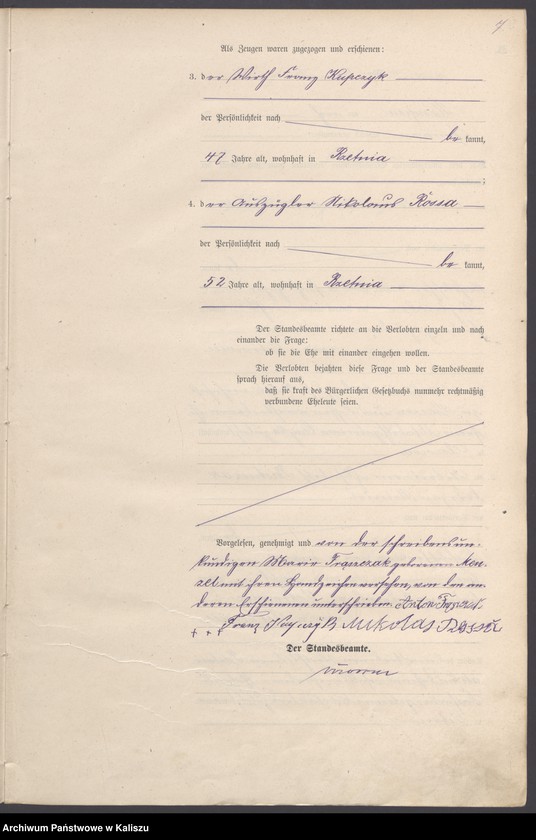 Als Zeugen waren zugezogen und erschienen:
3. der Wirth Franz Kupczyk
der Persönlichkeit nach
be kannt,
47 Jahre alt, wohnhaft in Rzetnia
;
4. der Auszügler Nikolaus Rossa
der Persönlichkeit nach
be kannt,
52 Jahre alt, wohnhaft in Rzetnia
Der Standesbeamte richtete an die Verlobten einzeln und nach
einander die Frage:
ob sie die Ehe mit einander eingehen wollen.
Die Verlobten bejahten diese Frage und der Standesbeamte
sprach hierauf aus,
daß sie kraft des Bürgerlichen Gesetzbuchs nunmehr rechtmäßig
verbundene Eheleute seien.
Vorgelesen, genehmigt und von der schreibensun-
kundigen Marie geborenen
mit ihren Handzeichen versehen, von den an-
deren Erschienenen unterschrieben. Anton
+ + + Franz Mikolas Rossa
Der Standesbeamte.
Archiwum Państwowe w Kaliszu